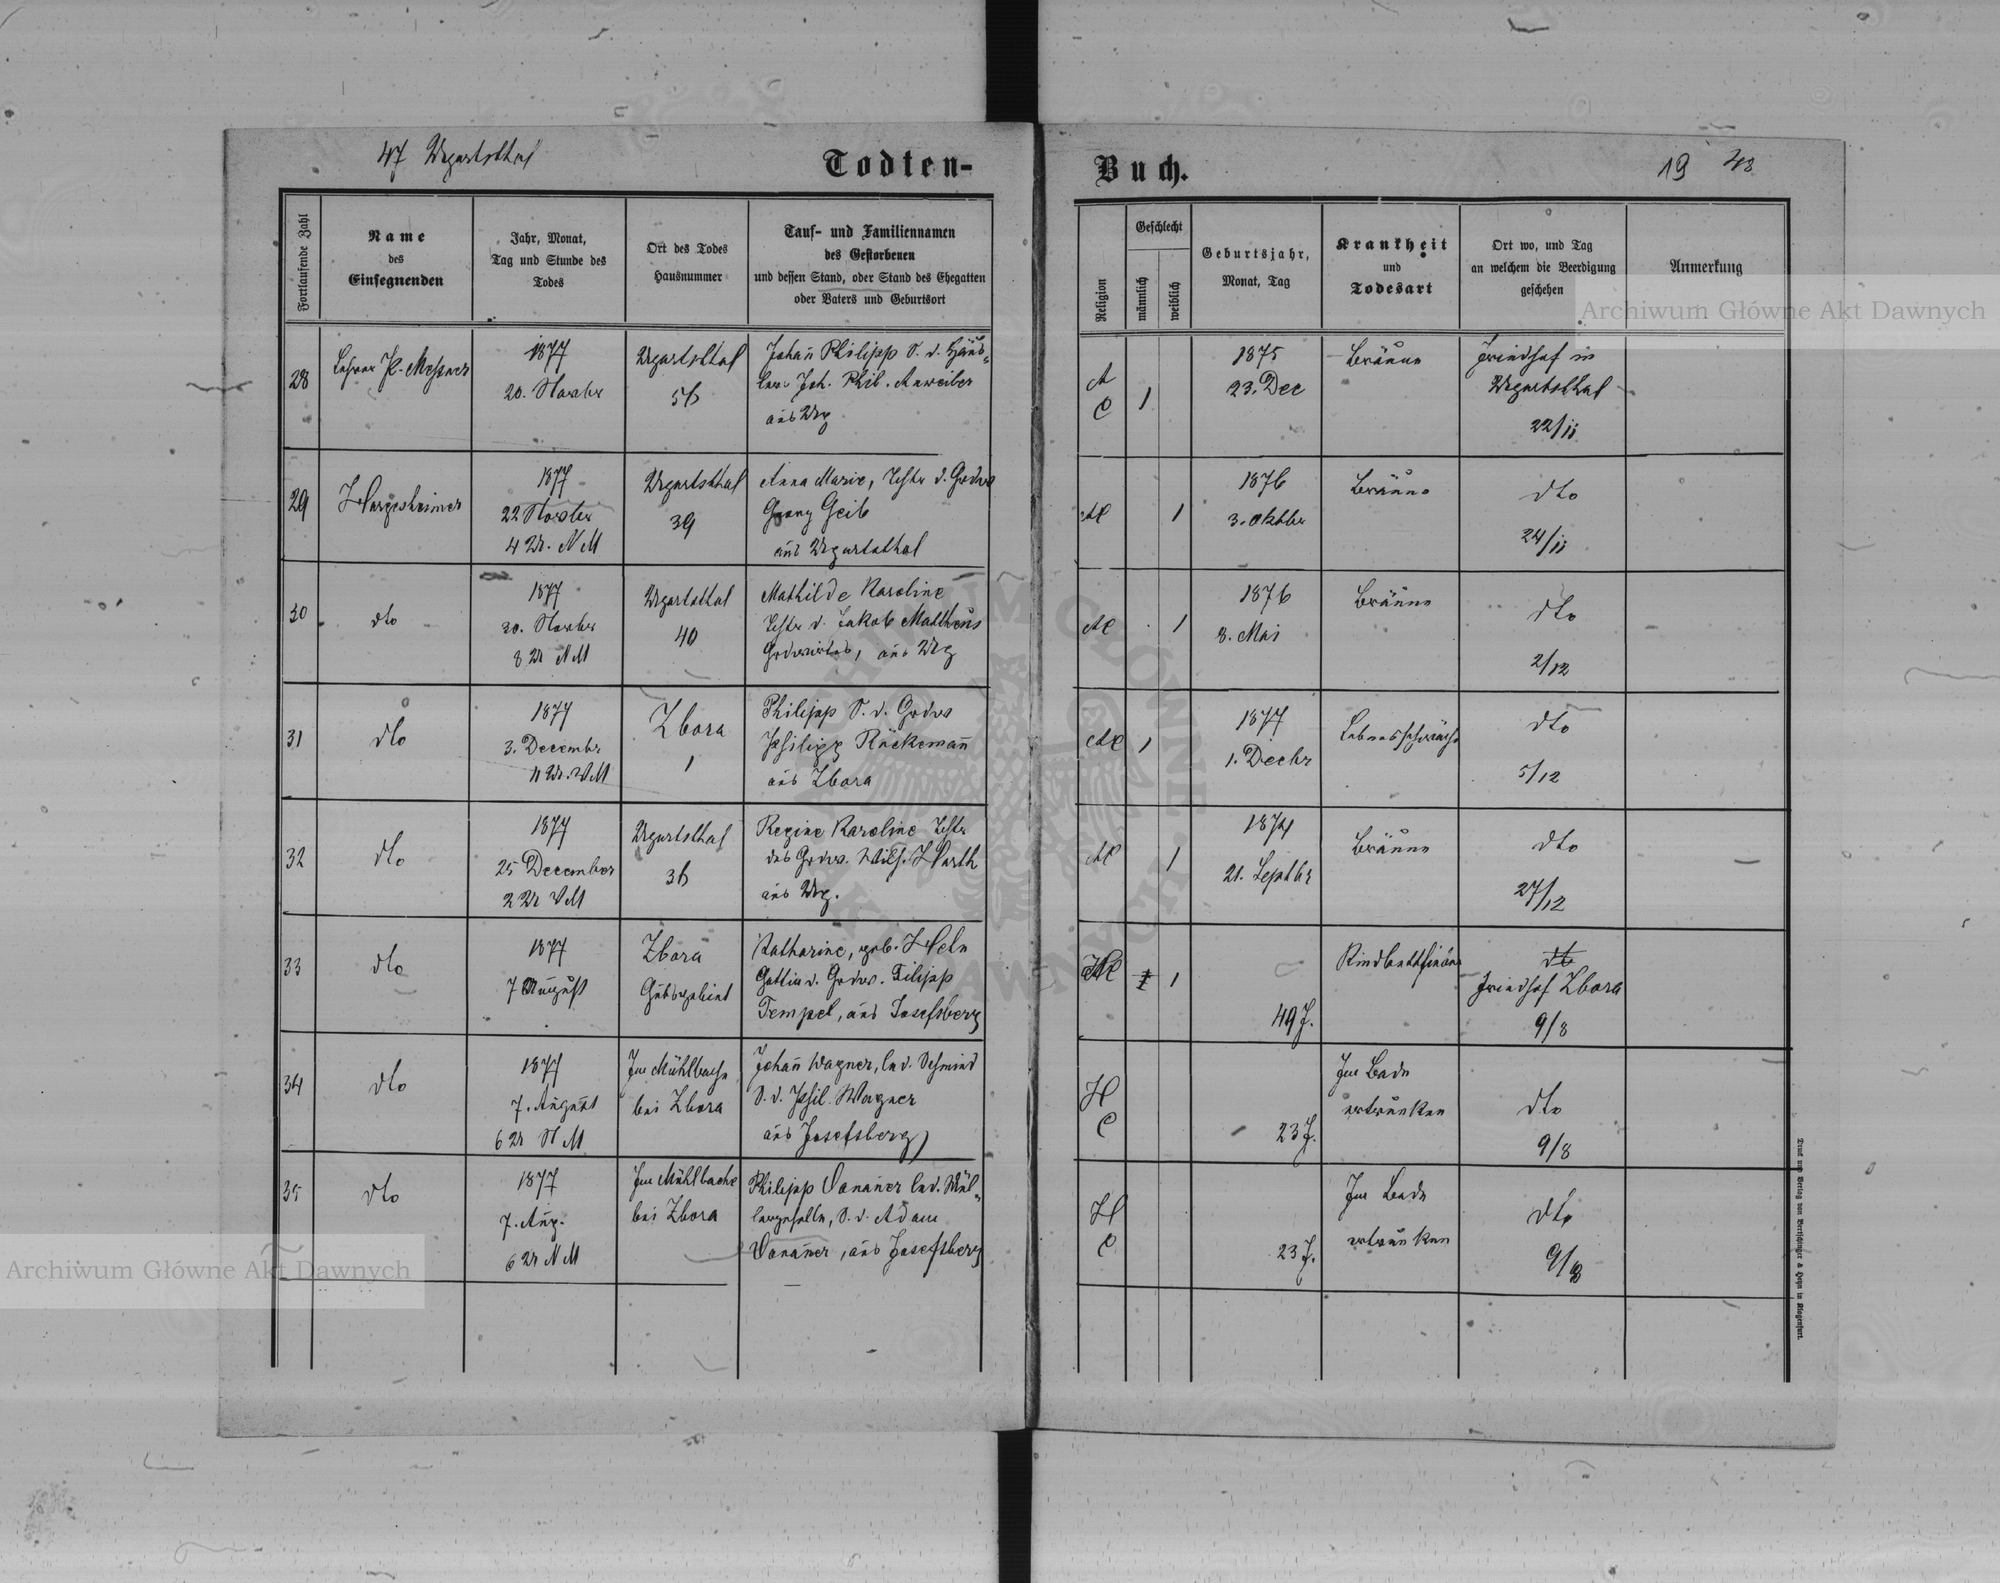 47 Ugartsthal
Todten-
Buch.
19 48
Fortlaufende Zahl
Name
des
Einsegnenden
Jahr, Monat,
Tag und Stunde des
Todes
Ort des Todes
Hausnummer
Tauf- und Familiennamen
des Gestorbenen
und dessen Stand, oder Stand des Ehegatten
oder Vaters und Geburtsort
Religion
Geschlecht
männlich
weiblich
Geburtsjahr,
Monat, Tag
Krankheit
und
Todesart
Ort wo, und Tag
an welchem die Beerdigung
geschehen
Anmerkung
28
Lehrer P. Messner
1877
20. Novbr
Ugartsthal
56
Johañ Philipp S. d. Häus-
lers Joh. Phil. Anweiler
aus Urg
A
C
1
1875
23. Dec
Bräune
Friedhof in
Ugartsthal
22/11
29
Hargesheimer
1877
22 Novbr
4 Ur. NM
Ugartsthal
39
Anna Marie, Tchtr d. Grdws
Georg Geib
aus Ugartsthal
AC
1
1876
3. Oktbr
Bräune
dto
24/11
30
dto
1877
30. Novbr
8 Ur NM
Ugartsthal
40
Mathilde Karoline
Tchtr d. Jakob Matheus
Grdwirtes, aus Urg
AC
1
1876
8. Mai
Bräune
dto
2/12
31
dto
1877
3. Decembr
11 Ur. VM
Zbora
1
Philipp S. d. Grdws
Philipp Rückemañ
aus Zbora
AC
1
1877
1. Decbr
Lebensschwäche
dto
5/12
32
dto
1877
25 December
2 Ur VM
Ugartsthal
36
Regine Karoline Tchtr
des Grdws. Wilh. Harth
aus Urg.
AC
1
1874
21. Septbr
Bräune
dto
27/12
33
dto
1877
7 August
Zbora
Gutsgebiet
Katharine, geb. Heln
Gattin d. Grdws. Filipp
Tempel, aus Josefsberg
HC
1
49 J.
Kindbettfieber
dto
Friedhof Zbora
9/8
34
dto
1877
7. August
6 Ur NM
Im Mühlbache
bei Zbora
Johañ Wagner, led. Schmied
S. d. Phil. Wagner
aus Josefsberg
H
C
23 J.
Im Bade
ertrunken
dto
9/8
35
dto
1877
7. Aug.
6 Ur NM
Im Mühlbache
bei Zbora
Philipp led. Mül-
lergeselle, S. d. Adam
aus Josefsberg
H
C
23 J.
Im Bade
ertrunken
dto
9/8
Druck und Verlag von Bertschinger & Heyn in Klagenfurt.
Archiwum Główne Akt Dawnych
Archiwum Główne Akt Dawnych
ARCHIWUM GŁÓWNE AKT DAWNYCH